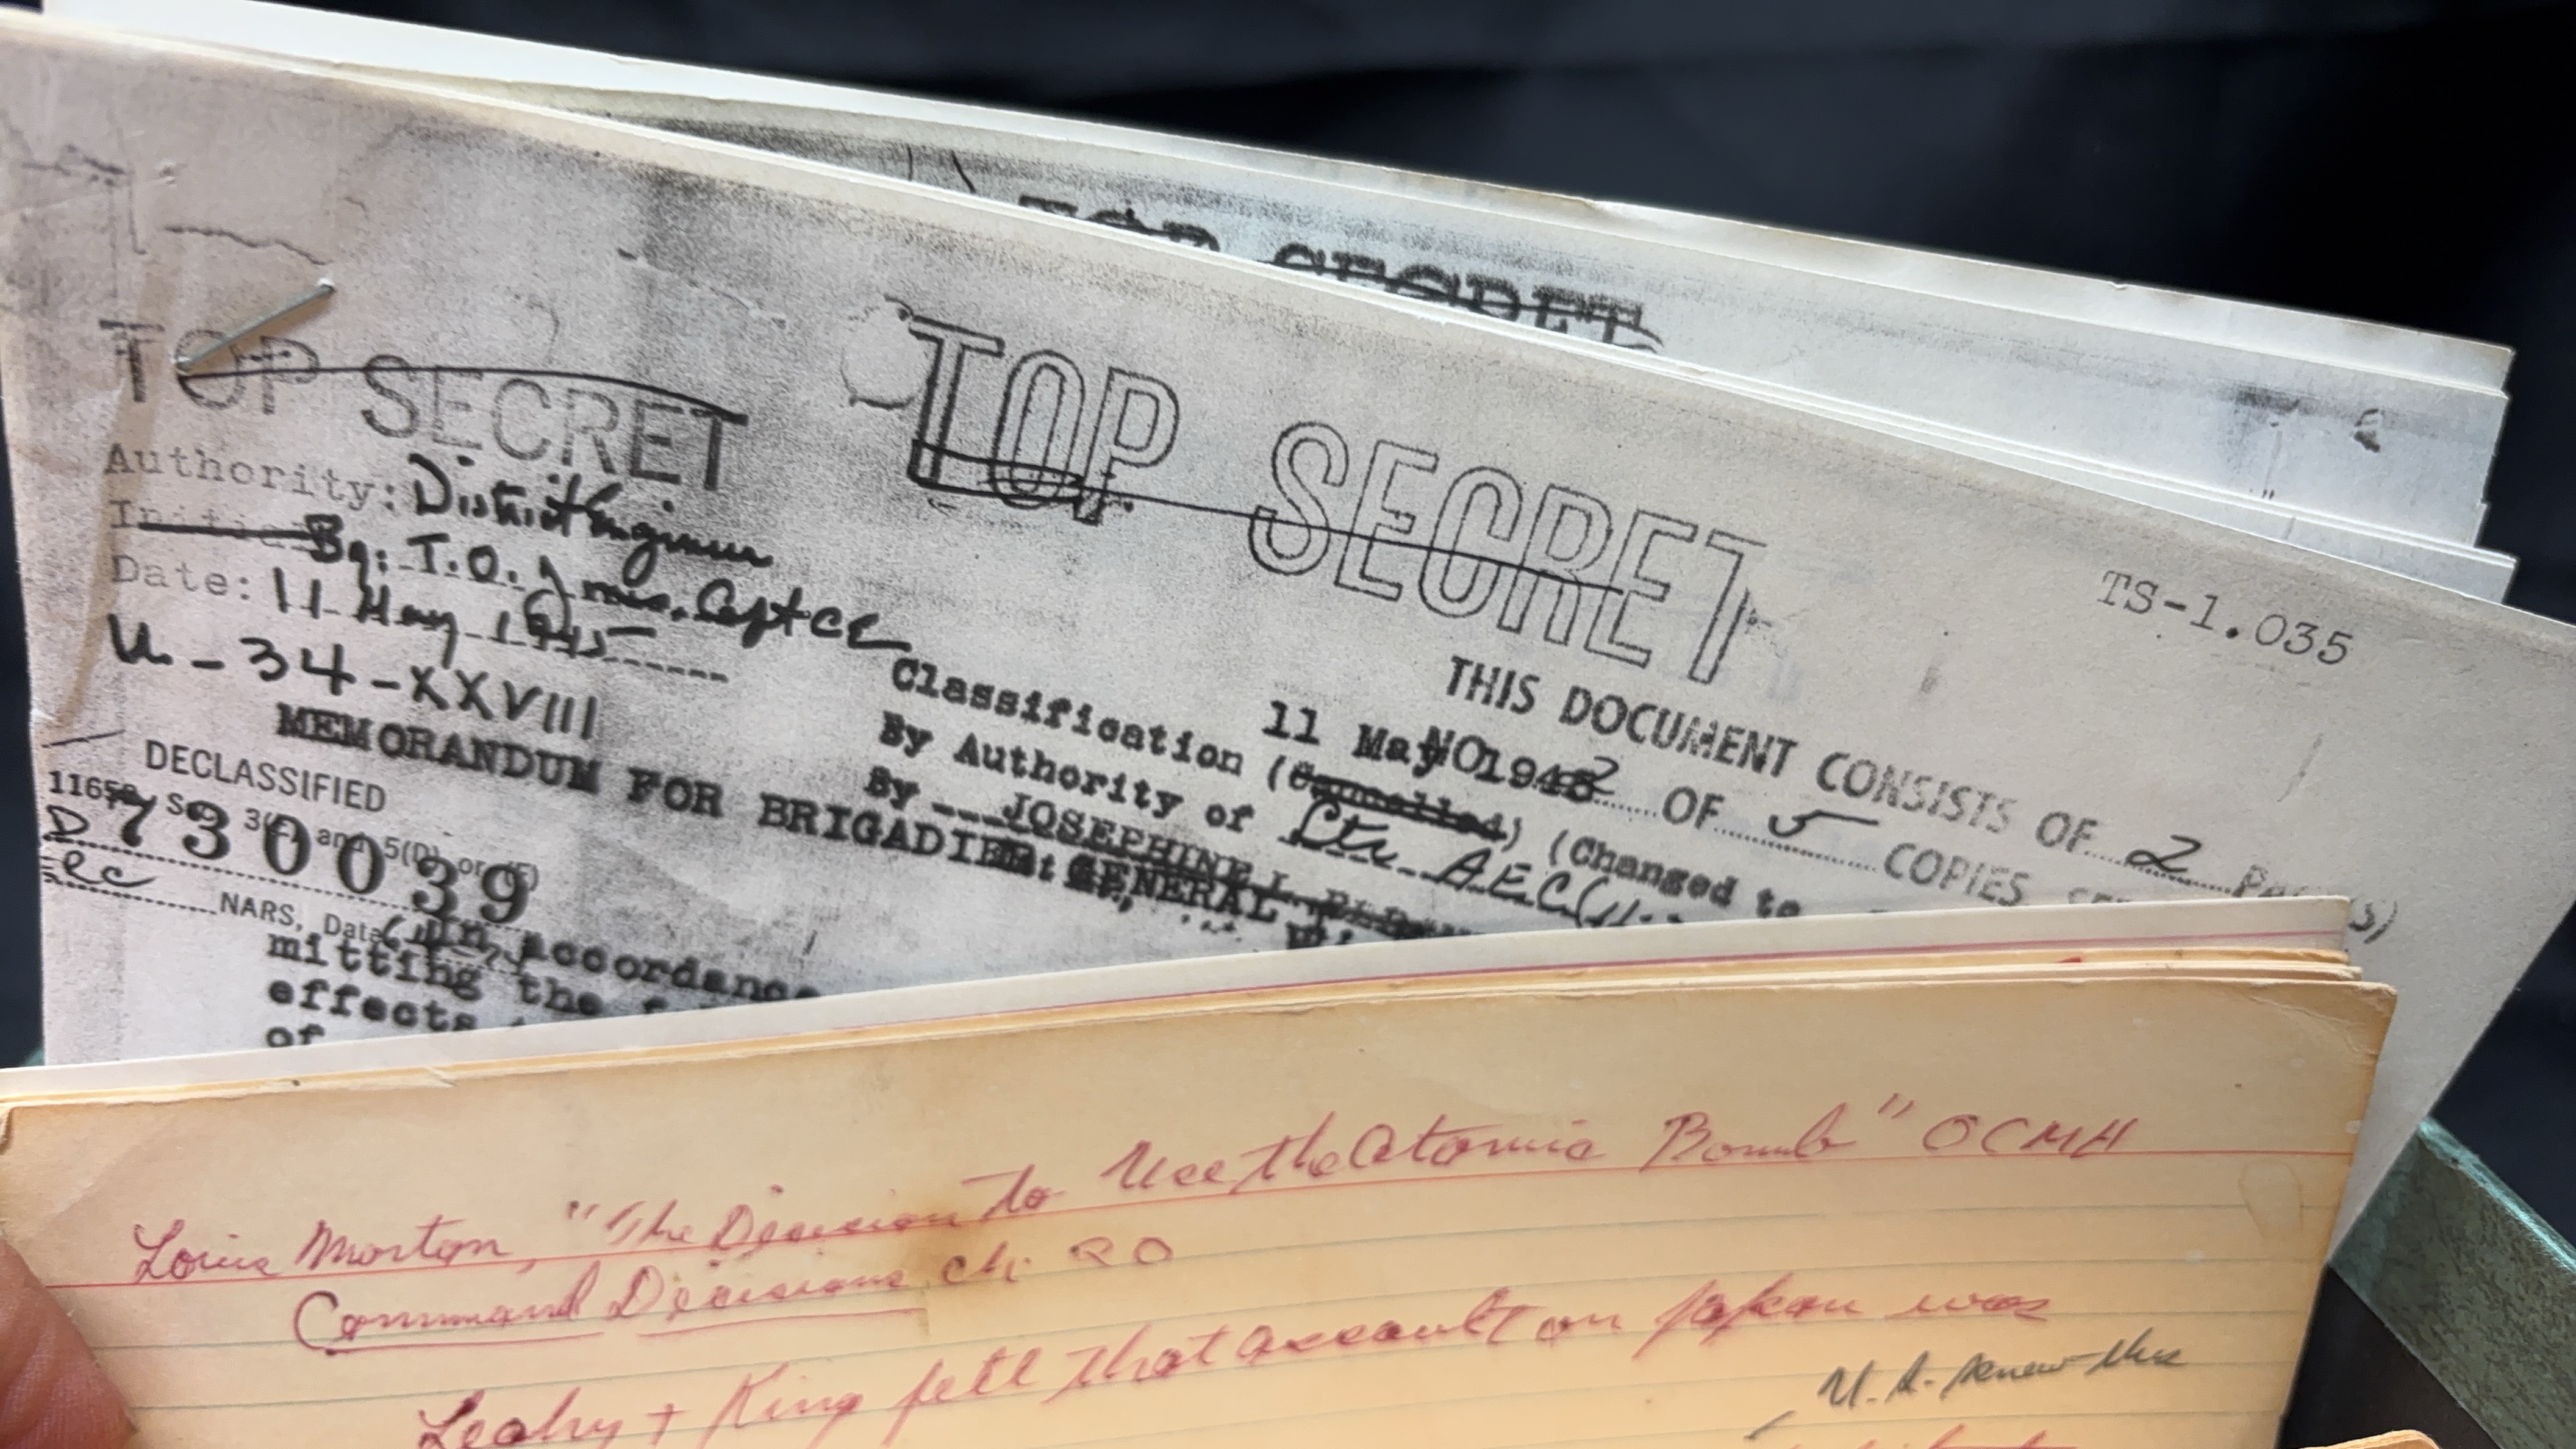 TOP SECRET
TOP SECRET
TOP SECRET
TS-1.035
Authority: District Engineer
By: T.O. Jones, Capt CE
Date: 11 May 1945
U-34-XXVIII
THIS DOCUMENT CONSISTS OF 2
NO 2 OF 5 COPIES
11 May 1945
Classification (Cancelled) (Changed to
By Authority of Ctr AEC
By JOSEPHINE
MEMORANDUM FOR BRIGADIER GENERAL
DECLASSIFIED
11652 Sec 3(E) and 5(D) or (E)
730039
NARS, Date
In accordance
mitting the
effects
of
Louis Morton, "The Decision to Use the Atomic Bomb" OCMH
Command Decisions ch. 20
Leahy + King felt that assault on Japan was